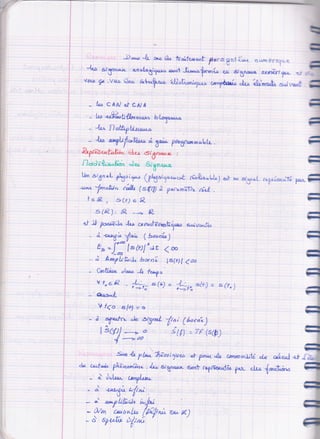 Dans le cas du traitement par
les signaux analogiques sont transformés en signaux numériques et
vers une interface électronique comportant des éléments suivants
- les CAN et CNA
- les échantillonneurs bloqueurs
- les Multiplexeurs
- les amplificateurs à gain programmable.
Représentation des signaux :
Modélisation des signaux
Un signal physique (physiquement réalisable) est un signal représenté par
une fonction réelle (s(t)) à paramètre réel.
t ∈ R , s(t) ∈ R
S(R) : R → R
et il possède les caractéristiques suivantes
- à énergie finie (bornée)
E = ∫ |s(t)|² dt < ∞
- à Amplitude bornée |s(t)| < ∞
- Continue dans le temps
∀ t₀ ∈ R s(t) = s(t) = s(t₀)
- Causal
∀ t<0 s(t) = 0
- à spectre de signal fini (bornée)
|S(f)| → 0 S(f) = TF(s(t))
f → ∞
Sur le plan théorique et pour la commodité de calcul et
de certains phénomènes, les signaux sont représentés par des fonctions
- à valeurs complexes
- à énergie infinie
- à amplitude infinie
- Non causales (définie sur R)
- à spectre infini